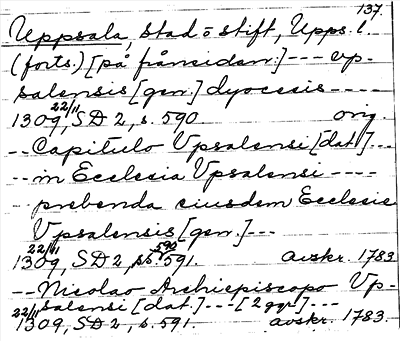 137.
Uppsala, stad o stift, Upps. l.
(forts.) [på frånsidan.] --- vp-
salensis [gen.] dyocesis ----
1309 22/11, SD 2, s. 590 orig.
-- Capitulo Vpsalensi [dat.] ---
-- in Ecclesia Vpsalensi ----
-- prebenda eiusdem Ecclesie
Vpsalensis [gen.] ---
1309 22/11, SD 2, s. 590 591. avskr. 1783
-- Nicolao Archiepiscopo Vp-
salensi [dat.] --- [2 ggr] ---
1309 22/11, SD 2, s. 591. avskr. 1783.